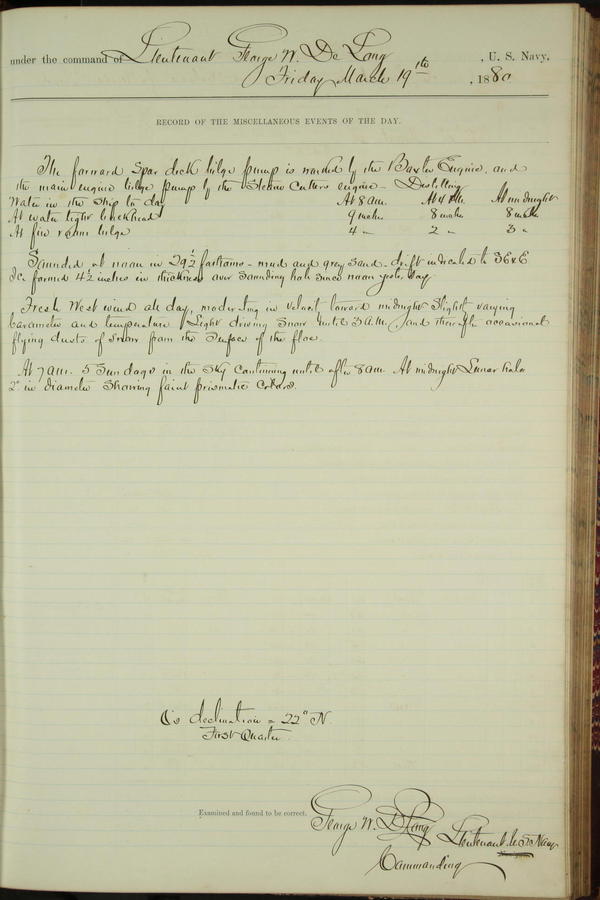 under the command of Lieutenant George W. De Long, U. S. Navy.
Friday March 19th, 1880
RECORD OF THE MISCELLANEOUS EVENTS OF THE DAY.
The forward Spar deck bilge pump is worked by the Baxter Engine, and
the main engine bilge pump by the Steam Cutters engine - Distilling
Water in the Ship to day At 8 am. At 4 P.M. At midnight
At water tight bulkhead 9 inches 8 inches 8 inches
At fire room bilge 4 " 2 " 3 "
Sounded at noon in 29 1/2 fathoms - mud and grey Sand - drift indicated to S 6 x E
Ice formed 4 1/2 inches in thickness over Sounding hole since noon yesterday
Fresh West wind all day, moderating in velocity toward midnight Slightly varying
barometer and temperature Light driving Snow until 3 A.M. and thereafter occasional
flying dusts of Snow from the Surface of the floe.
At 7 am. 5 Sun dogs in the Sky Continuing until after 8 am. At midnight Lunar halo
2° in diameter Showing faint prismatic Colors.
☾'s declination = 22° N
First Quarter.
Examined and found to be correct.
George W. De Long Lieutenant U. S. Navy
Commanding